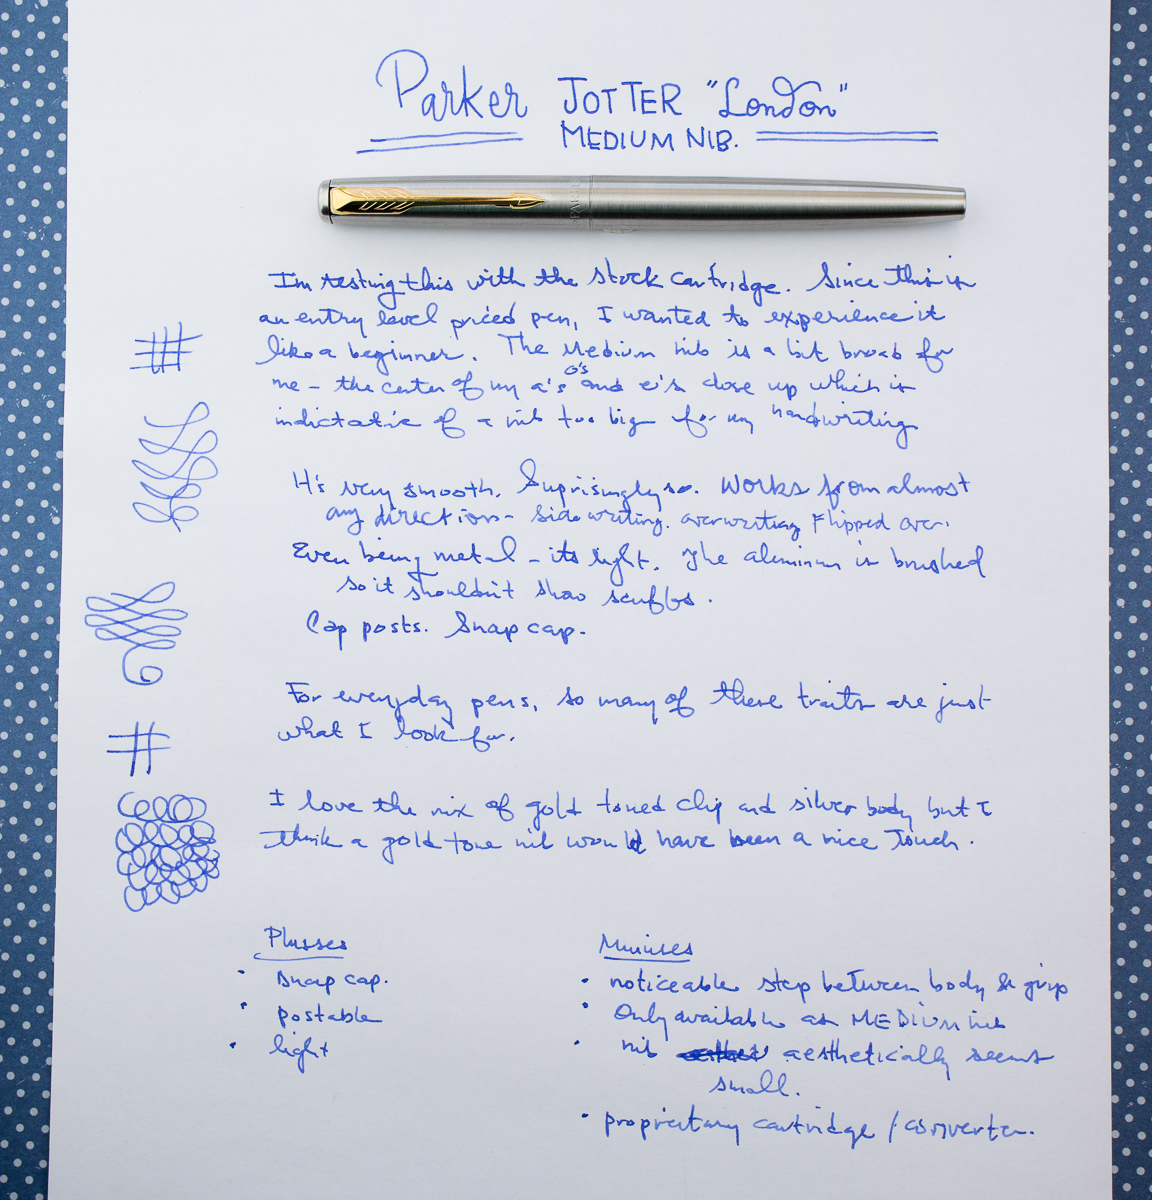 Parker JOTTER "London"
MEDIUM NIB.
PARKER
I'm testing this with the stock cartridge. Since this is
an entry level priced pen, I wanted to experience it
like a beginner. The Medium nib is a bit broad for
me – the center of my a's o's and e's close up which is
indictative of a nib too big for my handwriting
It's very smooth. Suprisingly so. Works from almost
any direction – side writing. overwriting Flipped over.
Even being metal – its light. The aluminum is brushed
so it shouldn't show scuffs.
Cap posts. Snap cap.
For everyday pens, so many of these traits are just
what I look for.
I love the mix of gold toned clip and silver body but I
think a gold tone nib would have been a nice touch.
Plusses
· snap cap.
· postable
· light
Minuses
· noticeable step between body & grip
· Only available as MEDIUM nib
· nib aesthetically seems
small.
· proprietary cartridge / converter.